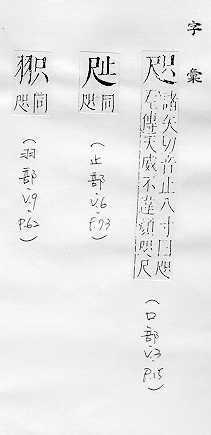 字彙
咫
諸矢切音止八寸曰咫
左傳天威不違顏咫尺
(口部.v.3.P.15)
同咫
(止部.v.6.P.73)
同咫
(羽部.v.9.P.62)